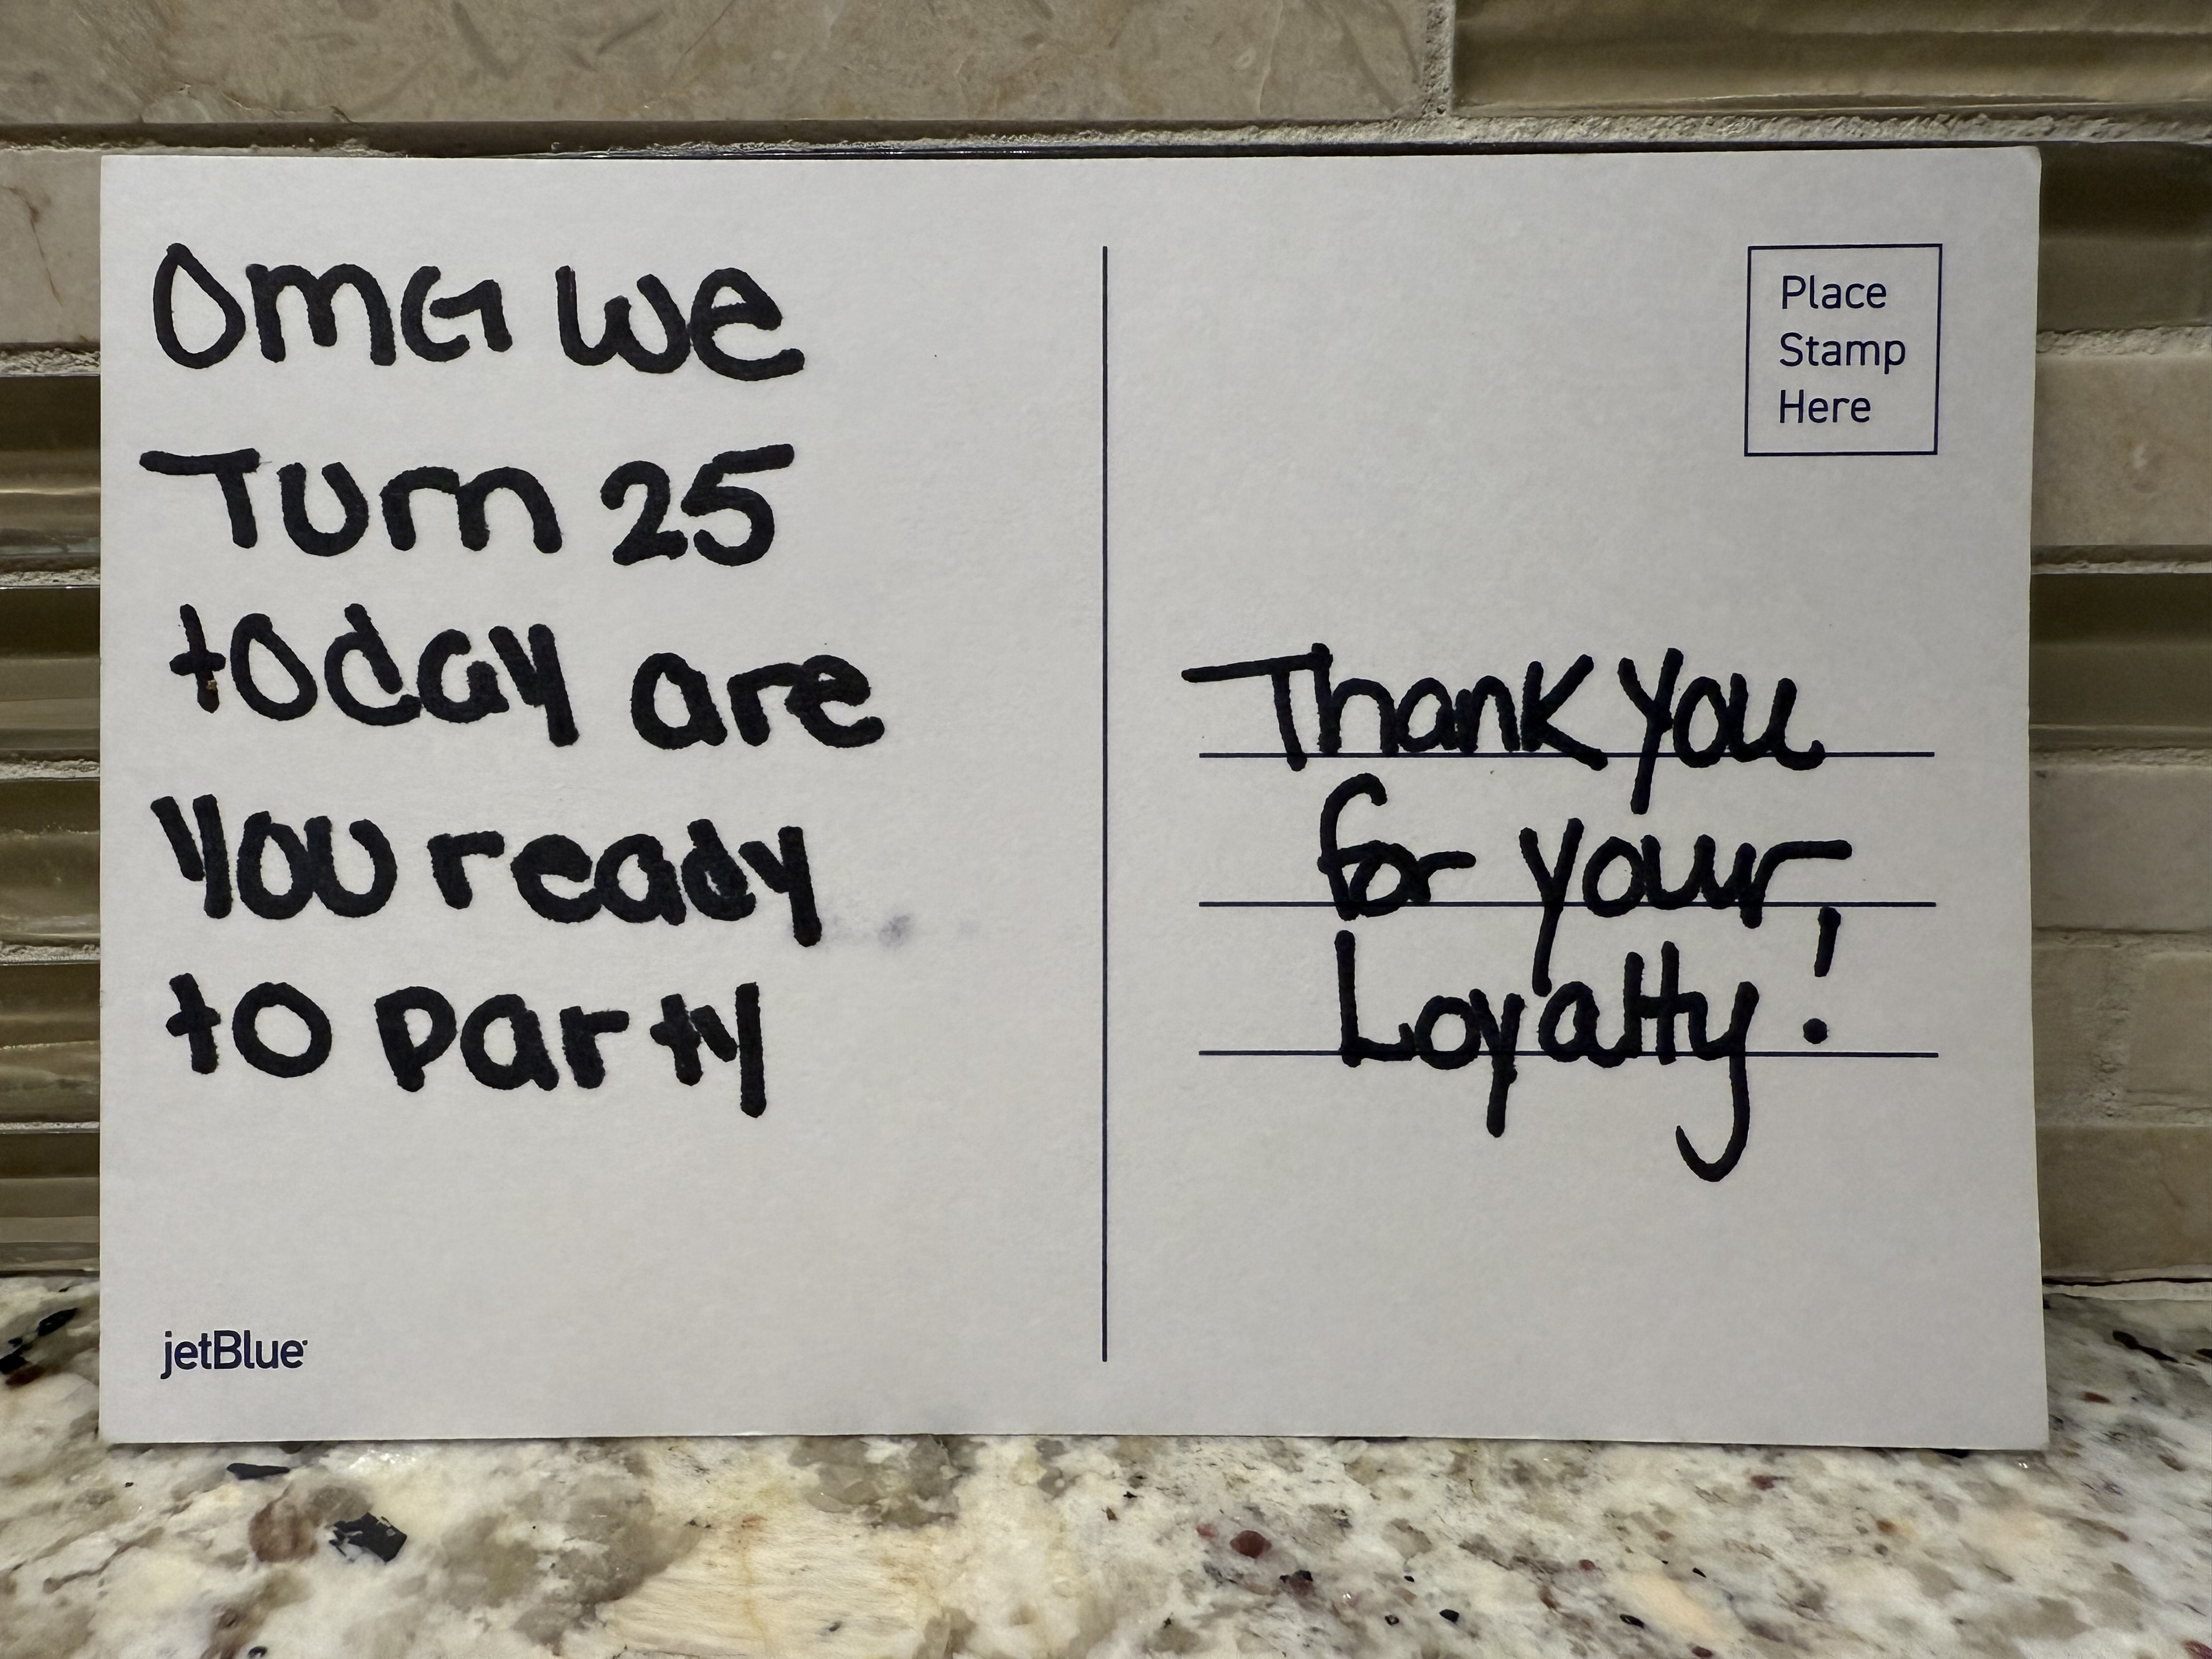 OMG we
Turn 25
today are
you ready
to party
jetBlue
Place
Stamp
Here
Thank you
for your
Loyalty!